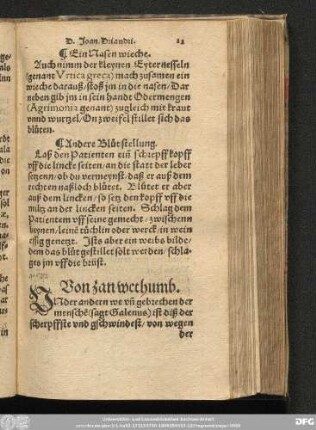 D. Joan. Driandri. 21
¶ Ein Nasen wieche.
Auch nimm der kleynen Eyternesseln
(genant Vrtica greca) mach zusamen ein
wieche darauß / stoß jm in die nasen / Dar
neben gib jm in sein handt Odermengen
(Agrimonia genant) zugleich mit kraut
vnnd wurtzel / On zweifel stillet sich das
blüten.
¶ Andere Blütstellung.
Laß den Patienten ein schrepff kopff
vff die lincke seiten / an die statt der leber
setzenn / ob du vermeynst / daß er auß dem
rechten naßloch blütet. Blütet er aber
auß dem lincken / so setz den kopff vff die
miltz an der lincken seiten. Schlag dem
Patientem vff seine gemecht / zwischenn
leynen / leinē tüchlin oder werck / in wein
essig genetzt. Ists aber ein weibs bilde /
dem das blüt gestillet solt werden / schla-
ges jm vff die brüst.
Von zan wethumb.
Vnder andern we vñ gebrechen der
menschē (sagt Galenus) ist diß der
scherpffste vnd gschwindest / von wegen
der
DFG